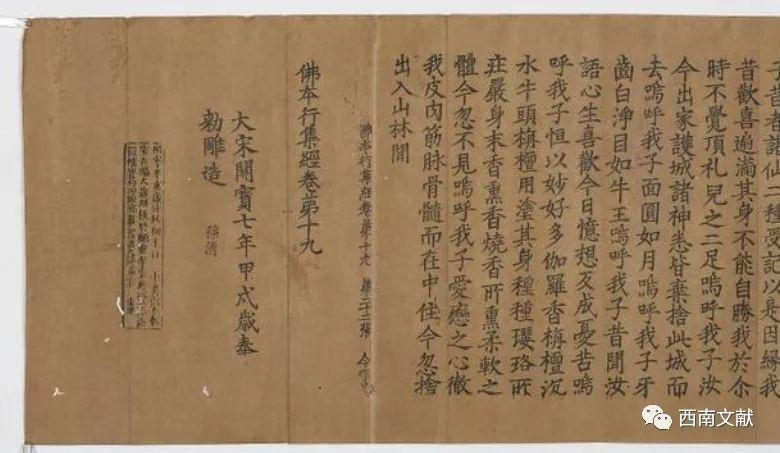 子昔者諸仙二種受記以是因緣我
昔歡喜遍滿其身不能自勝我於尒
時不覺頂礼兒之二足嗚呼我子汝
今出家護城諸神悉皆棄捨此城而
去嗚呼我子面圓如月嗚呼我子牙
齒白淨目如牛王嗚呼我子昔聞汝
語心生喜歡今日憶想反成憂苦嗚
呼我子恒以妙好多伽羅香栴檀沉
水牛頭栴檀用塗其身種種瓔珞而
莊嚴身末香熏香燒香所熏柔軟之
體今忽不見嗚呼我子愛戀之心徹
我皮肉筋脉骨髓而在中住今忽捨
出入山林間
佛本行集經卷第十九 第二十二張
佛本行集經卷第十九
大宋開寶七年甲戌歲奉
勑雕造 孫清
西南文献